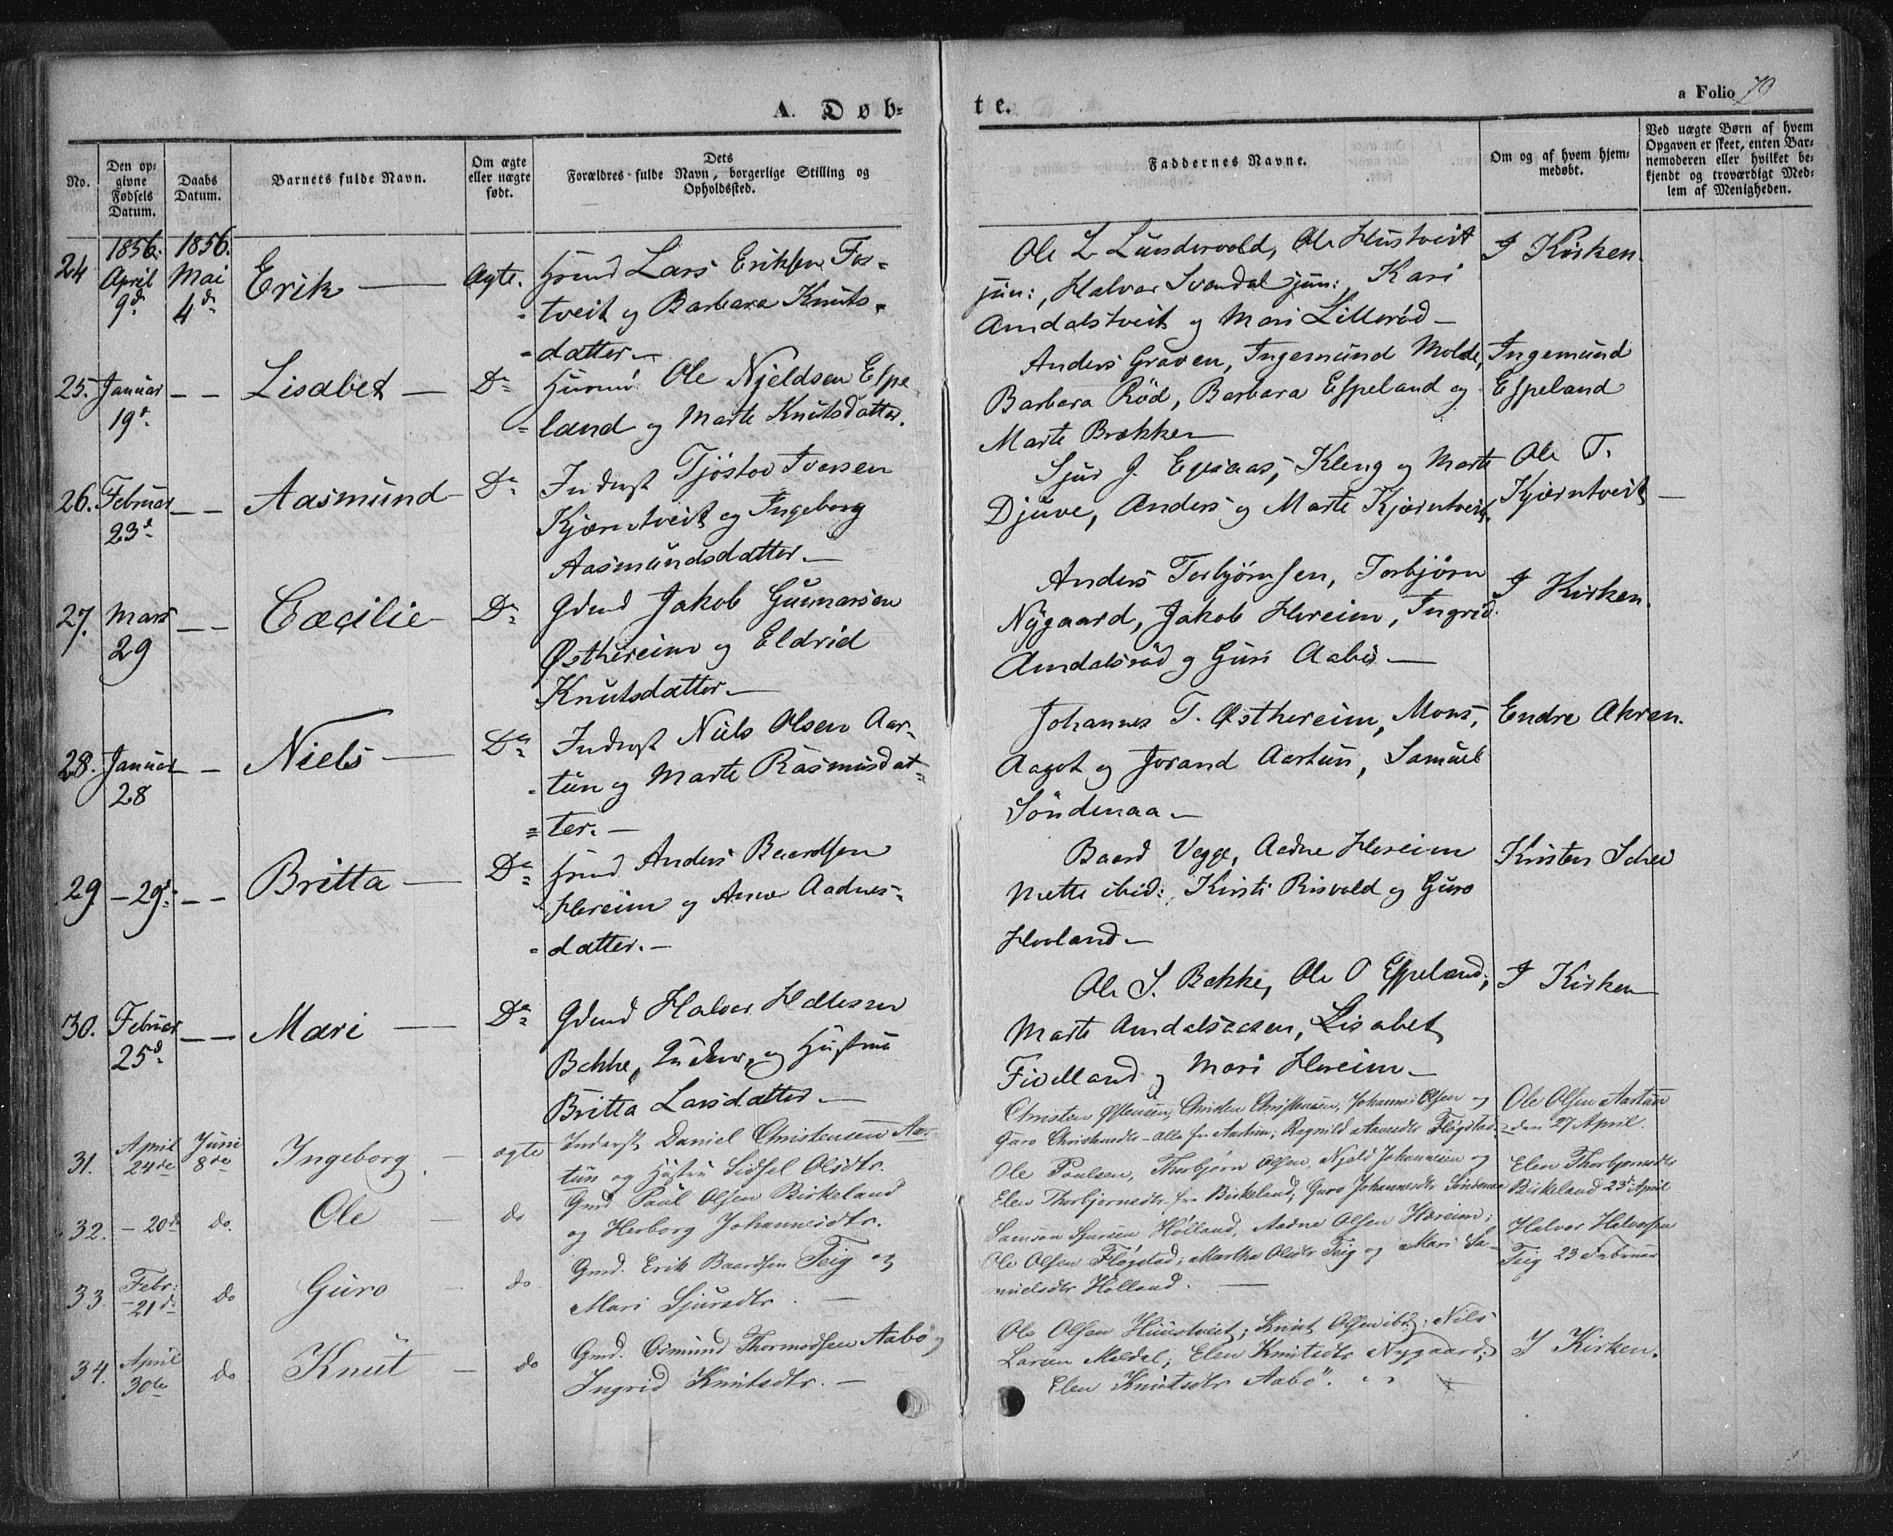 A. Døb-
te.
a Folio 70
No.
Den op-
givne
Fødsels
Datum.
Daabs
Datum.
Barnets fulde Navn.
Om ægte
eller uægte
født.
Dets
Forældres fulde Navn, borgerlige Stilling og
Opholdssted.
Faddernes Navne.
Om og af hvem hjem-
medøbt.
Ved uægte Børn af hvem
Opgaven er skeet, enten Bar-
nemoderen eller hvilket be-
kjendt og troværdigt Med-
lem af Menigheden.
24
1856.
April
9d.
1856.
Mai
4d.
Erik —
Ægte.
Lars Eriksen Fos-
-tveit og Barbara Knuts-
-datter —
Ole L Lundervold, Ole Hustveit
jun:, Halvor Svandal jun:, Kari
Amdalstveit og Mari Lillerød —
I Kirken.
25. Januar
19d.
— —
Lisabet —
Do
Ole Njeldsen Espe
-land og Marte Knutsdatter.
Anders Graven, Ingemund Molde,
Barbara Rød, Barbara Espeland og
Marte Brekken —
Ingemund
Espeland
26. Februar
23d.
— —
Aasmund
Do
Inderst Tjöstov Iversen
Kjærntveit og Ingeborg
Aasmundsdatter. —
Sjur J. Kleng og Marte
Djuve, Anders og Marte Kjærntveit.
Ole T.
Kjærntveit —
27. Mars
29
— —
Cæcilie
Do
Gdmd Jakob Gunnarsen
Østhereim og Eldrid
Knutsdatter —
Anders Torbjørnsen, Torbjørn
Nygaard, Jakob Hereim, Ingrid
Amdalsrød og Guri Aabø. —
I Kirken.
28. Januar
28
— —
Niels —
Do
Inderst Niels Olsen Aar-
-tun og Marte Rasmusdat-
=ter. —
Johannes T. Østhereim, Mons,
Aagot og Jorand Aartun, Samuel
Söndenaa —
Endre Akren.
29 — 29d. — —
Britta —
Do
Anders Baardsen
Hereim og Anna Aadnes-
-datter. —
Baard Vegge, Aadne Hereim
Mette ibid:, Kirsti Risvold og Guro
Hovland —
Kirsten Schei
30. Februar
25d.
— —
Mari —
Do
Gdmd Halvor Hallesen
Bakke, og Hustru
Britta Larsdatter —
Ole S. Bakke, Ole O Espeland,
Marte Amdalsaasen, Lisabet
Fivelland og Mari Hereim —
I Kirken
31.
April
24de
Juni
8de
Ingeborg. —
ægte
Inderst Daniel Christensen Aar-
tun og Hustru Sidsel Olsdtr.
Christen Østensen, Christen Christensen, Johannes Olsen og
Guro Christensdtr — alle fra Aartun; Ragnild Flögstad
Ole Olsen Aartun
den 27 April.
32. — 20de do.
Ole —
do
Gmd Paul Olsen Birkeland
og Herborg Johannesdtr.
Ole Paulsen, Thorbjørn Olsen, Njeld Johannesen og
Elen Thorbjørnsdtr fra Birkeland; Guro Johannesdtr Søndenaa
Elen Thorbjørnsdtr
Birkeland 23d April
33.
Febr:
— 21de
do
Guro —
do
Gmd. Erik Baardsen Teig og
Mari Sjursdtr. —
Samson Sjursen Hølland, Aadne Olsen Hæreim;
Ole Olsen Fløgstad; Martha Olsdtr Teig og Mari Sa-
muelsdtr Hölland. —
Halvor Halvorsen
Teig 23 Februar
34. April
30te
do
Knut —
do
Gmd. Osmund Thormodsen Aabø og
Ingrid Knutsdtr. —
Ole Olsen Huustveit; Knut Olsen ibd; Nils
Larsen Meldal; Elen Knutsdtr Nygaard;
Elen Knutsdtr Aabö.
I Kirken.